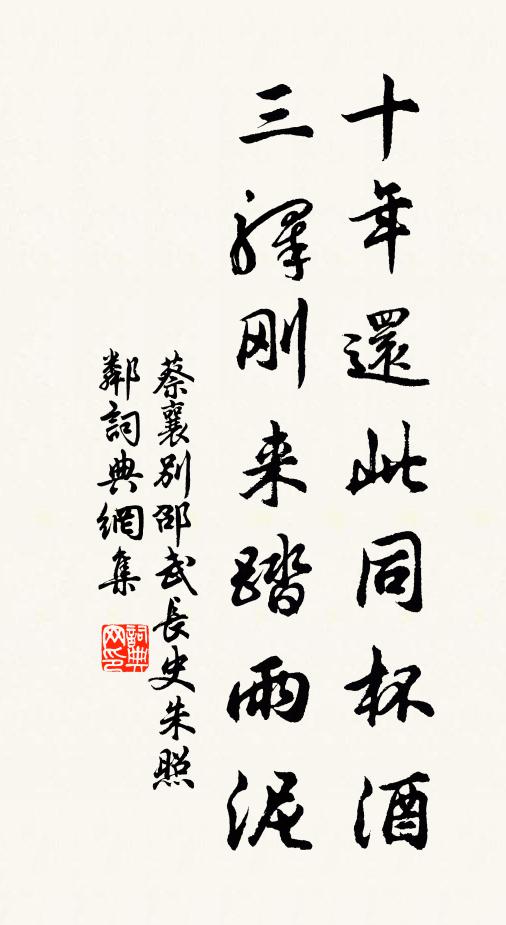 十年還此同杯酒
三驛刚来踏雨泥
蔡襄别邵武長史朱照
鄰詞典網集
詞典网印